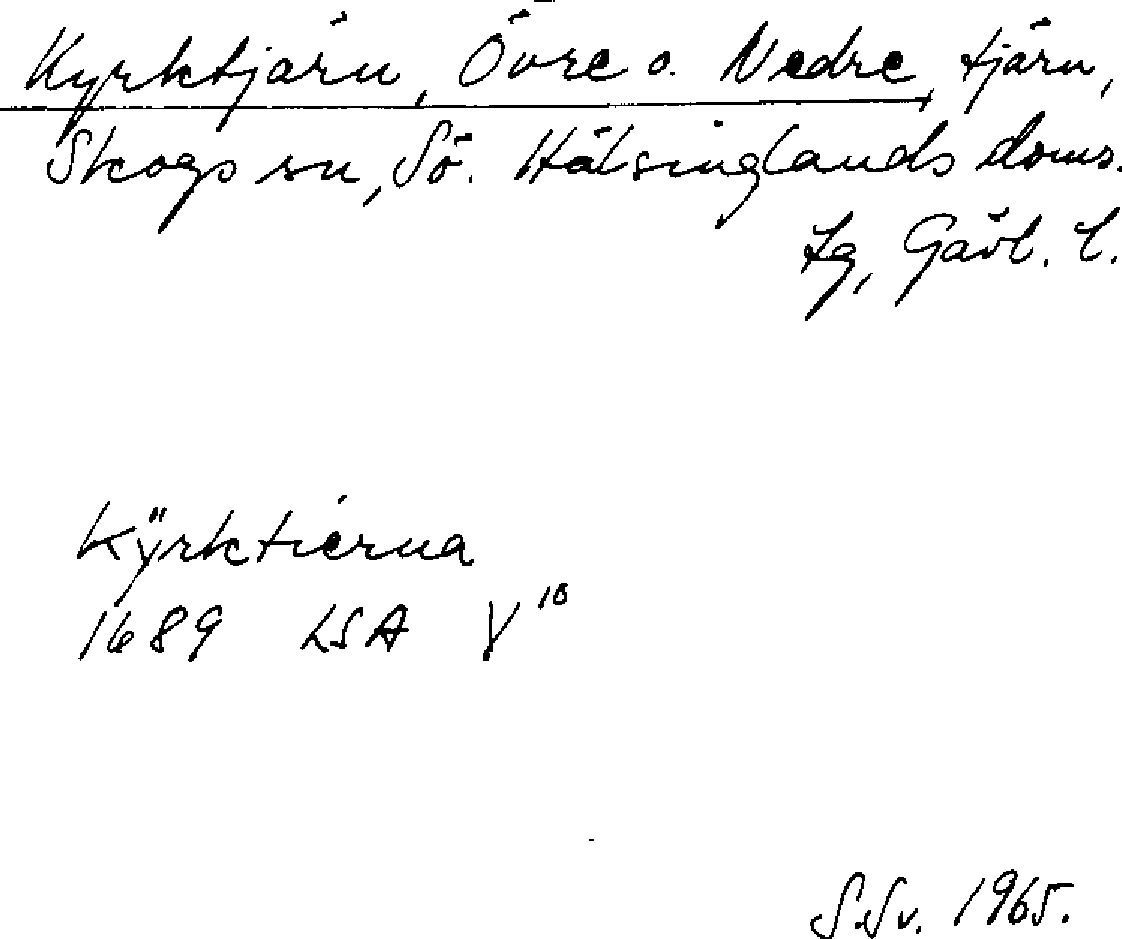 Kyrktjärn, Övre o. Nedre, tjärn,
Skogs sn, Sö. Hälsinglands doms.
tg, Gävl. l.
Kÿrktiérna
1689 LSA V¹⁰
S.Sv. 1965.